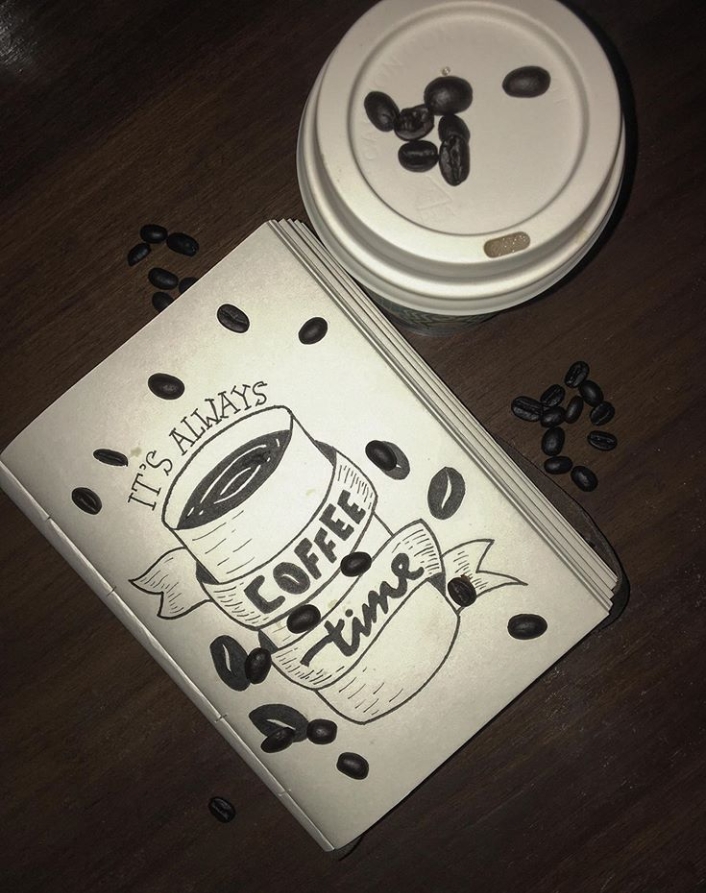 IT'S ALWAYS
COFFEE
time